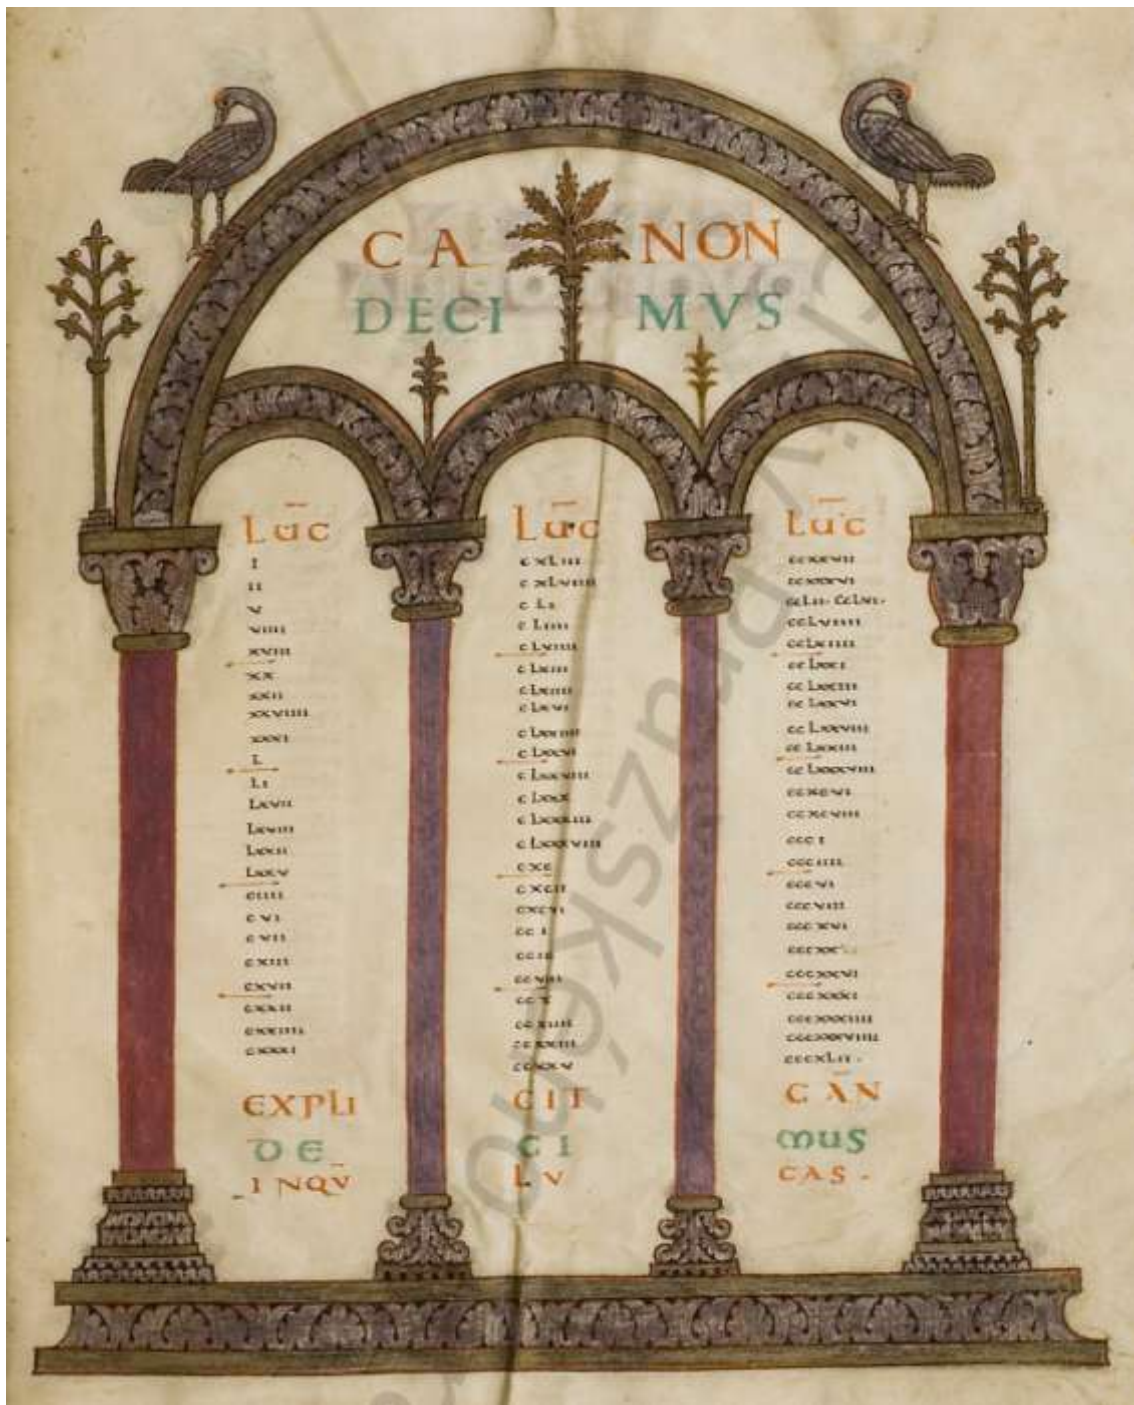 CA NON
DECI MVS
Lūc
I
II
V
VIIII
XVIII
XX
XXII
XXVIIII
XXXI
L
LI
LXVII
LXVIII
LXXII
LXXV
CIIII
CVI
CVII
CXIII
CXVII
CXXII
CXXIIII
CXXXI
Lūc
CXLIII
CXLVIIII
CLI
CLIIII
CLVIIII
CLXIII
CLXIIII
CLXVI
CLXXIIII
CLXXVI
CLXXVIII
CLXXX
CLXXXIII
CLXXXVIII
CXC
CXCII
CXCVI
CCI
CCVIII
CCX
CCXIIII
CCXXIII
CCXXV
Lūc
CCXXVII
CCXXXVI
CCLII. CCLVI.
CCLVIIII
CCLXIIII
CCLXXI
CCLXXIII
CCLXXVI
CCLXXVIII
CCLXXXVIII
CCXCVI
CCXCVIII
CCCI
CCCIIII
CCCVI
CCCVIII
CCCXVI
CCCXXVI
CCCXXXI
CCCXXXIIII
CCCXXXVIIII
CCCXLII.
EXPLI CIT CAN̄
DE CI MUS
INQV̄ LV CAS.